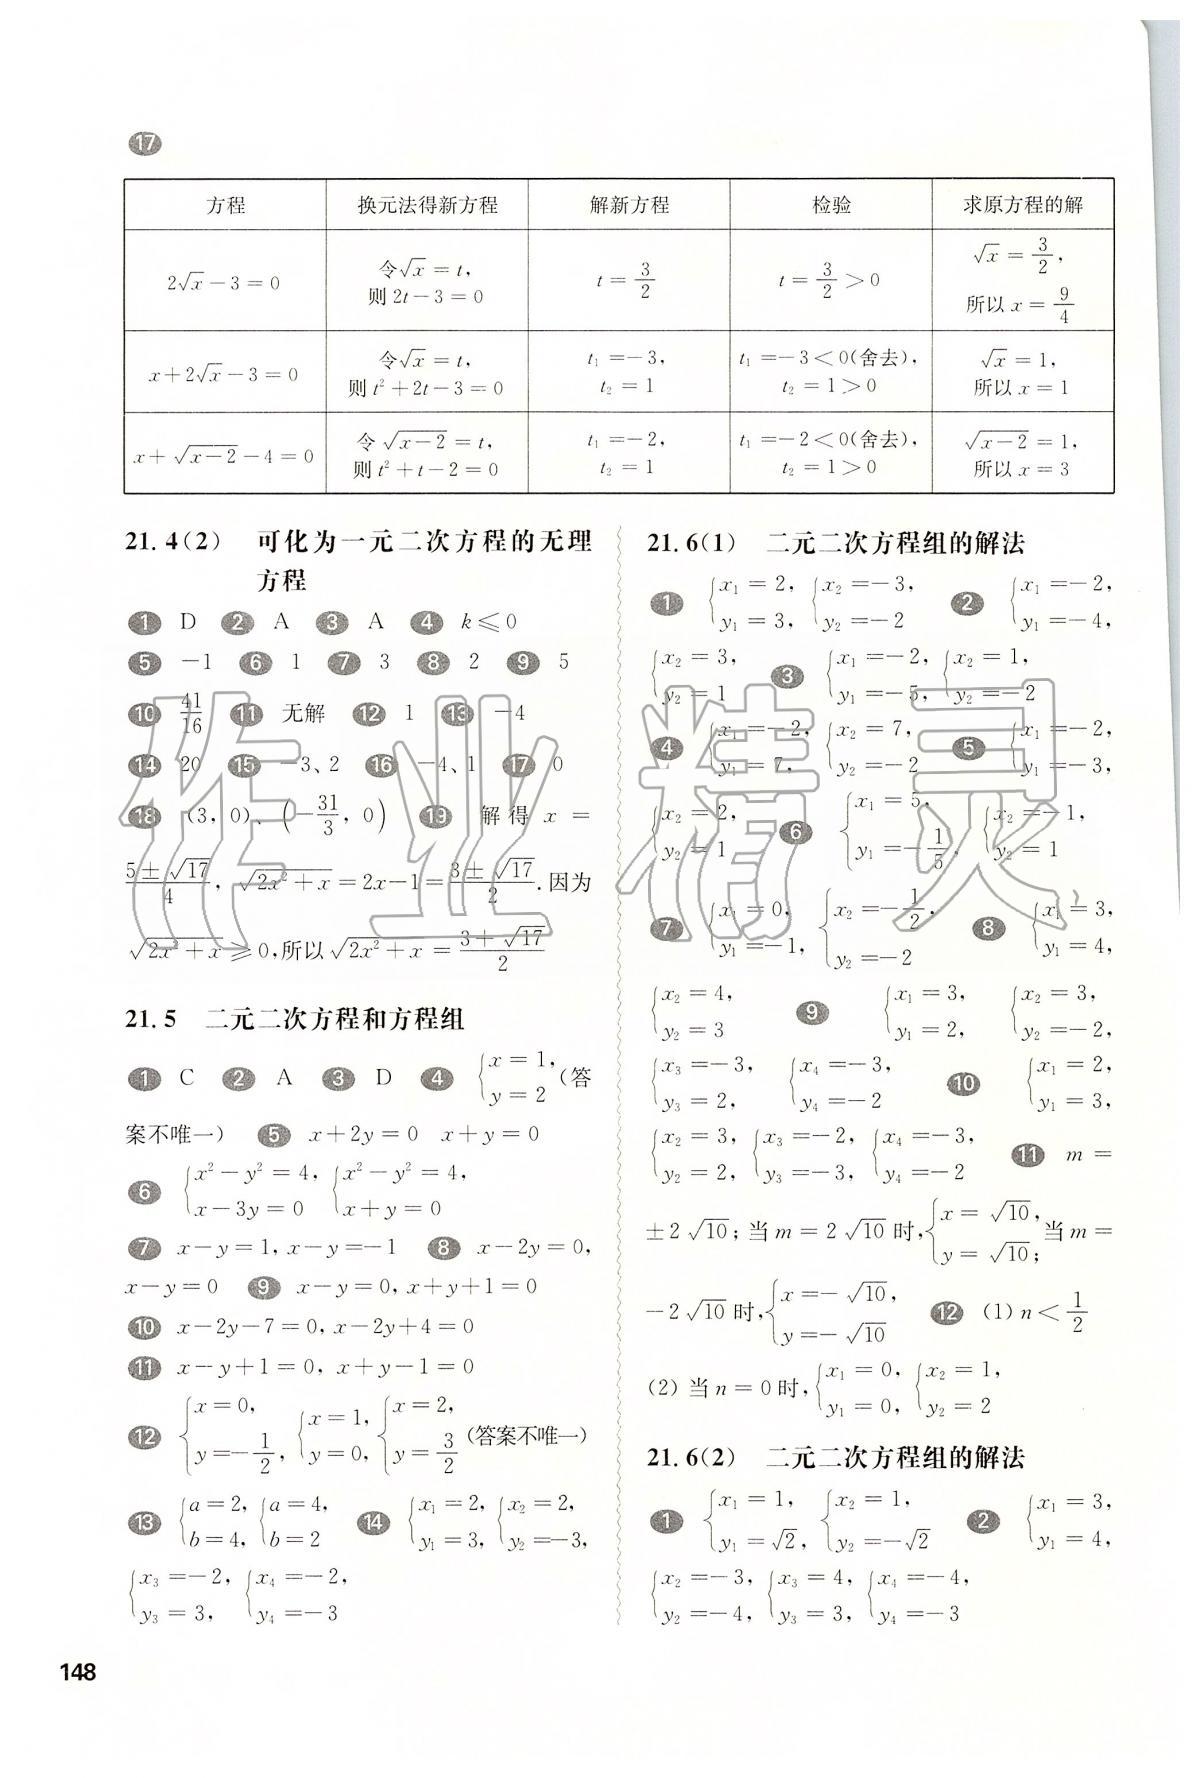 17
方程 换元法得新方程 解新方程 检验 求原方程的解
2√x－3＝0 令√x＝t，则 2t－3＝0 t＝3/2 t＝3/2＞0 √x＝3/2，所以 x＝9/4
x＋2√x－3＝0 令√x＝t，则 t²＋2t－3＝0 t₁＝－3，t₂＝1 t₁＝－3＜0(舍去)，t₂＝1＞0 √x＝1，所以 x＝1
x＋√(x－2)－4＝0 令 √(x－2)＝t，则 t²＋t－2＝0 t₁＝－2，t₂＝1 t₁＝－2＜0(舍去)，t₂＝1＞0 √(x－2)＝1，所以 x＝3
21.4(2) 可化为一元二次方程的无理
方程
1 D 2 A 3 A 4 k≤0
5 －1 6 1 7 3 8 2 9 5
10 41/16 11 无解 12 1 13 －4
14 20 15 －3、2 16 －4、1 17 0
18 (3，0)、(－31/3，0) 19 解得 x＝
(5±√17)/4，√(2x²＋x)＝2x－1＝(3±√17)/2.因为
√(2x²＋x)≥0,所以 √(2x²＋x)＝(3＋√17)/2
21.5 二元二次方程和方程组
1 C 2 A 3 D 4 {x＝1，y＝2 (答
案不唯一) 5 x＋2y＝0 x＋y＝0
6 {x²－y²＝4，x－3y＝0 {x²－y²＝4，x＋y＝0
7 x－y＝1，x－y＝－1 8 x－2y＝0，
x－y＝0 9 x－y＝0，x＋y＋1＝0
10 x－2y－7＝0，x－2y＋4＝0
11 x－y＋1＝0，x＋y－1＝0
12 {x＝0，y＝－1/2， {x＝1，y＝0， {x＝2，y＝3/2 (答案不唯一)
13 {a＝2，b＝4， {a＝4，b＝2 14 {x₁＝2，y₁＝3， {x₂＝2，y₂＝－3，
{x₃＝－2，y₃＝3， {x₄＝－2，y₄＝－3
21.6(1) 二元二次方程组的解法
1 {x₁＝2，y₁＝3， {x₂＝－3，y₂＝－2 2 {x₁＝－2，y₁＝－4，
{x₂＝3，y₂＝1 3 {x₁＝－2，y₁＝－5， {x₂＝1，y₂＝－2
4 {x₁＝－2，y₁＝7， {x₂＝7，y₂＝－2 5 {x₁＝－2，y₁＝－3，
{x₂＝2，y₂＝1 6 {x₁＝5，y₁＝－1/5， {x₂＝－1，y₂＝1
7 {x₁＝0，y₁＝－1， {x₂＝－1/2，y₂＝－2 8 {x₁＝3，y₁＝4，
{x₂＝4，y₂＝3 9 {x₁＝3，y₁＝2， {x₂＝3，y₂＝－2，
{x₃＝－3，y₃＝2， {x₄＝－3，y₄＝－2 10 {x₁＝2，y₁＝3，
{x₂＝3，y₂＝2， {x₃＝－2，y₃＝－3， {x₄＝－3，y₄＝－2 11 m＝
±2√10；当 m＝2√10 时，{x＝√10，y＝√10；当 m＝
－2√10 时，{x＝－√10，y＝－√10 12 (1) n＜1/2
(2) 当 n＝0 时，{x₁＝0，y₁＝0， {x₂＝1，y₂＝2
21.6(2) 二元二次方程组的解法
1 {x₁＝1，y₁＝√2， {x₂＝1，y₂＝－√2 2 {x₁＝3，y₁＝4，
{x₂＝－3，y₂＝－4， {x₃＝4，y₃＝3， {x₄＝－4，y₄＝－3
148
作业精灵